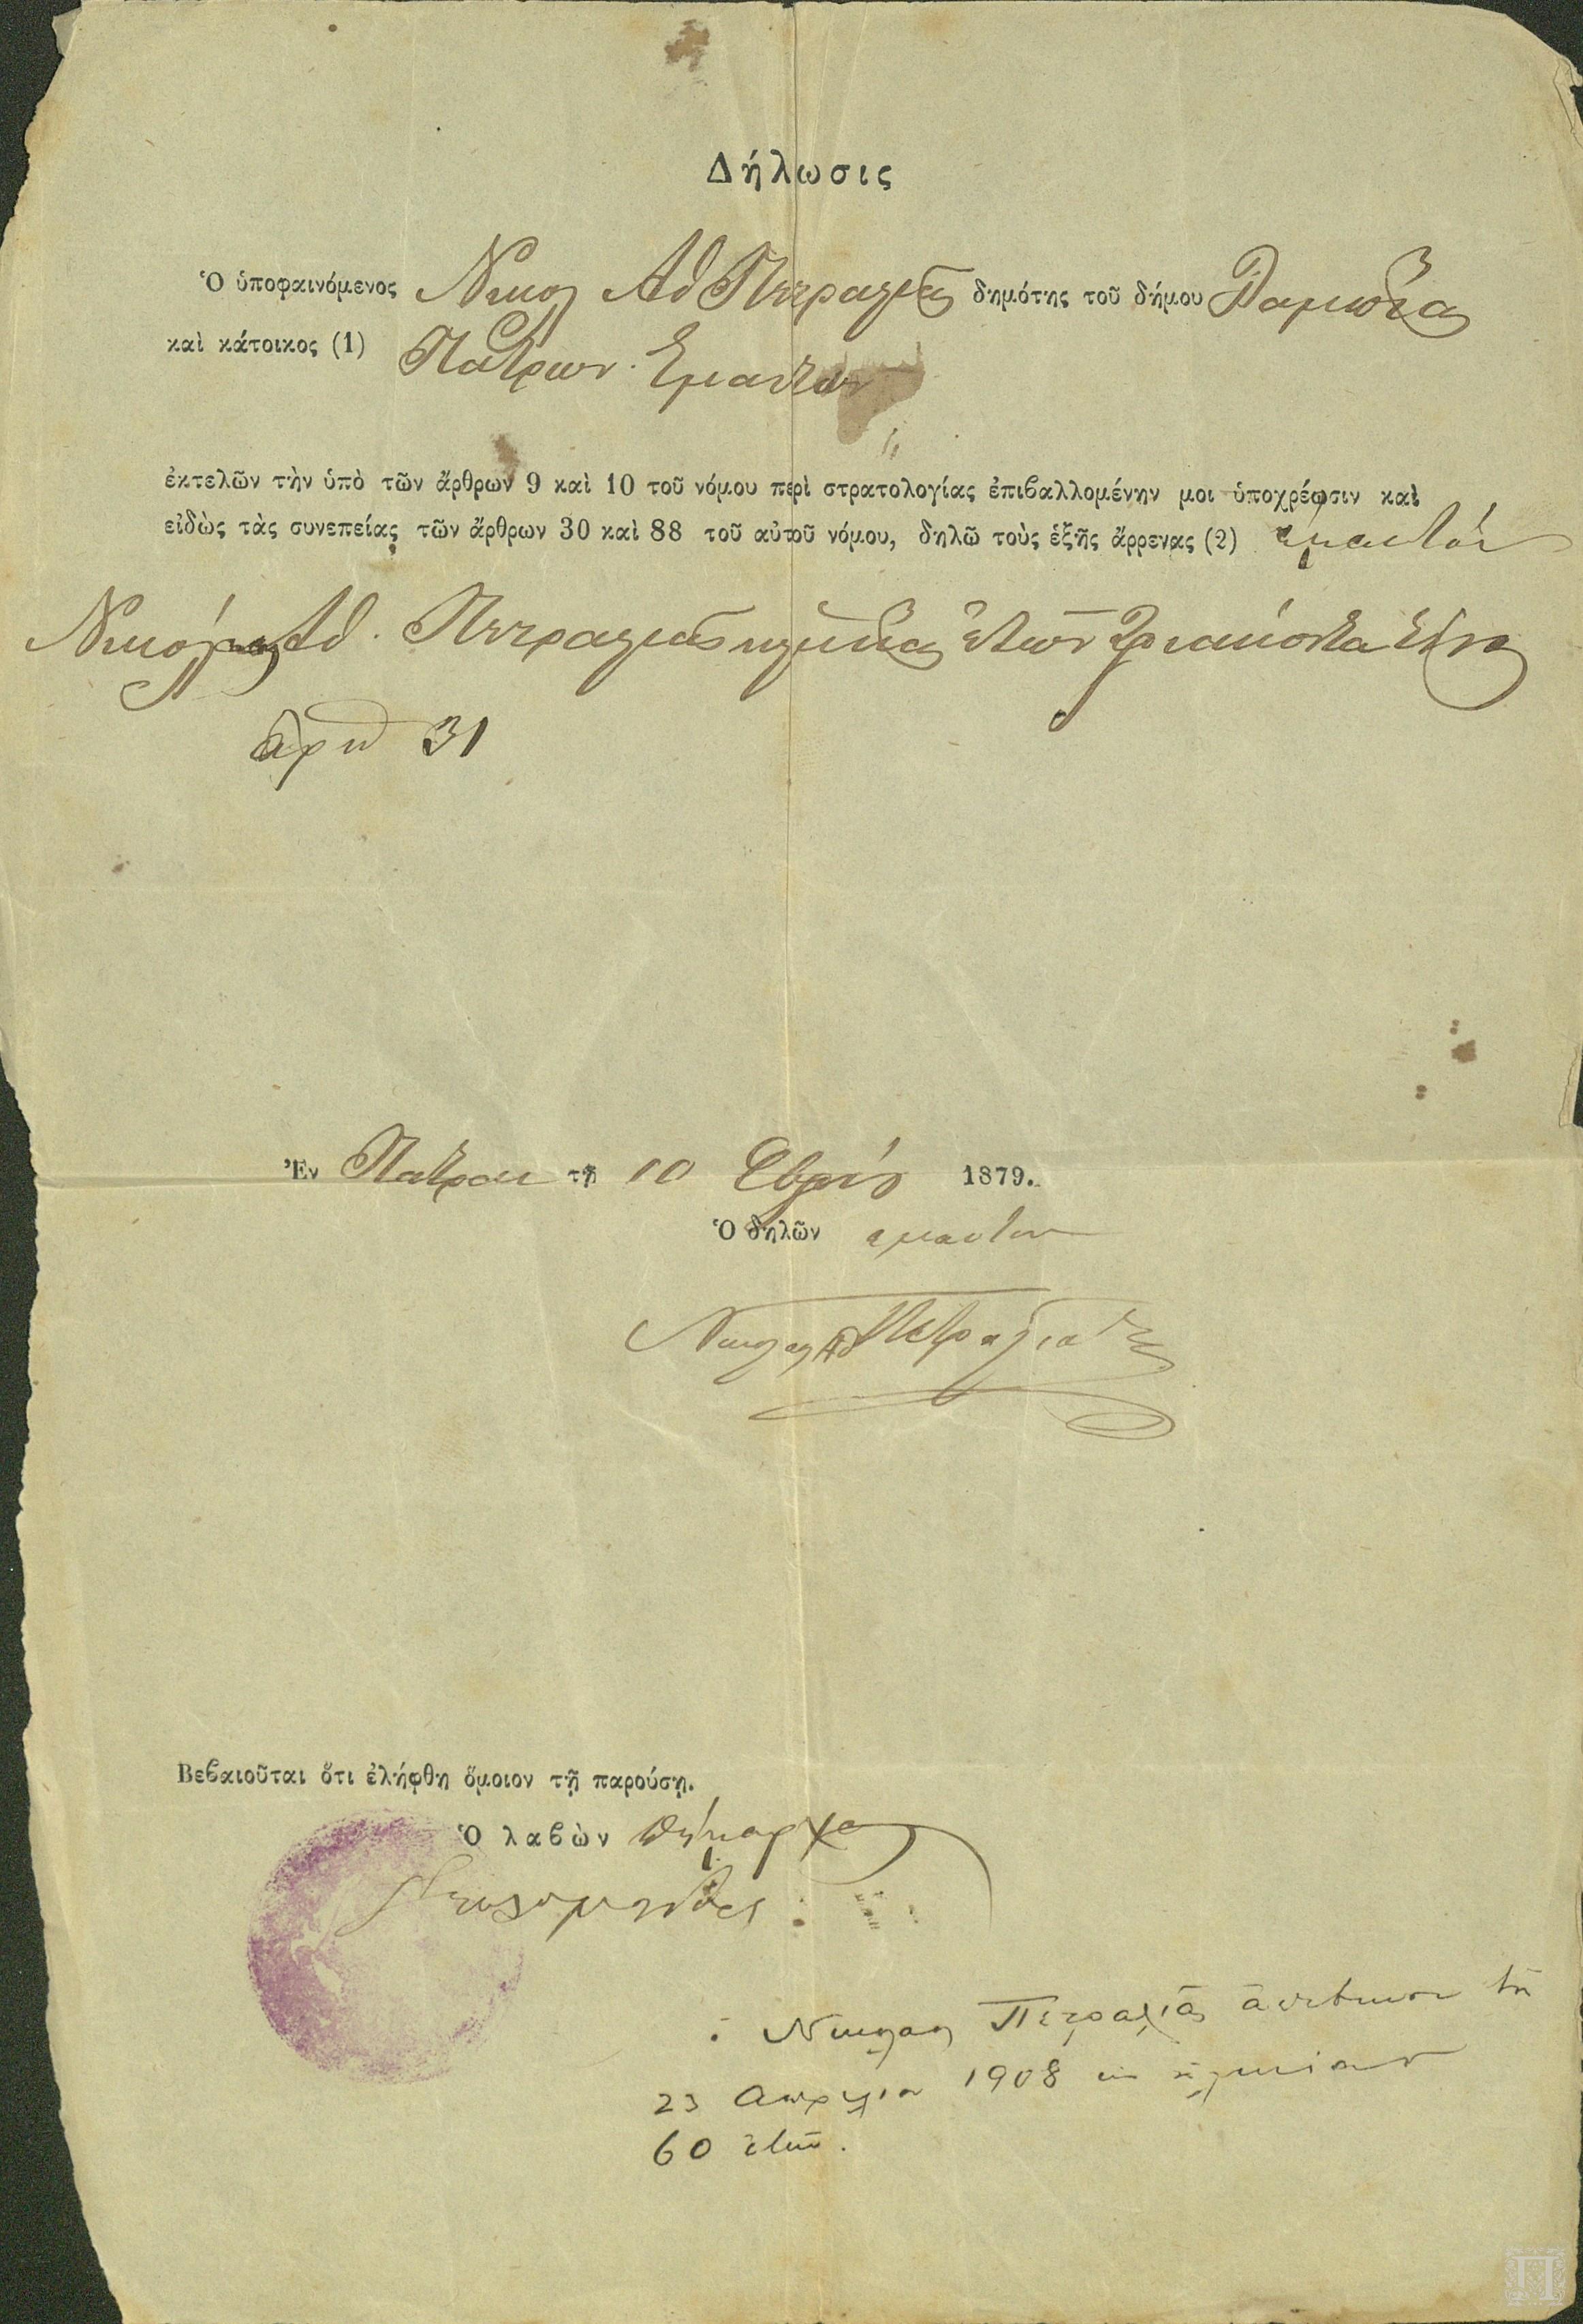 Δήλωσις
Ὁ ὑποφαινόμενος Νικολ Αθ Πετραλιᾶς δημότης τοῦ δήμου
καὶ κάτοικος (1) Πατρών. Εμαυτον
ἐκτελῶν τὴν ὑπὸ τῶν ἄρθρων 9 καὶ 10 τοῦ νόμου περὶ στρατολογίας ἐπιβαλλομένην μοι ὑποχρέωσιν καὶ
εἰδὼς τὰς συνεπείας τῶν ἄρθρων 30 καὶ 88 τοῦ αὐτοῦ νόμου, δηλῶ τοὺς ἑξῆς ἄρρενας (2) εμαυτόν
Νικόλαος Αθ. Πετραλιας ηλικίας ἐτῶν τριακόντα ἑνος
ἀριθ 31
Ἐν Πάτραις τῇ 10 Φβρίου 1879.
Ὁ δηλῶν εμαυτον
Νικολαος Αθ Πετραλιας
Βεβαιοῦται ὅτι ἐλήφθη ὅμοιον τῇ παρούσῃ.
Ὁ λαβὼν Δήμαρχος
Νικολαος Πετραλιᾶς ἀπεβίωσεν τη
23 Απριλιου 1908 εις ηλικίαν
60 ἐτῶν.
Π